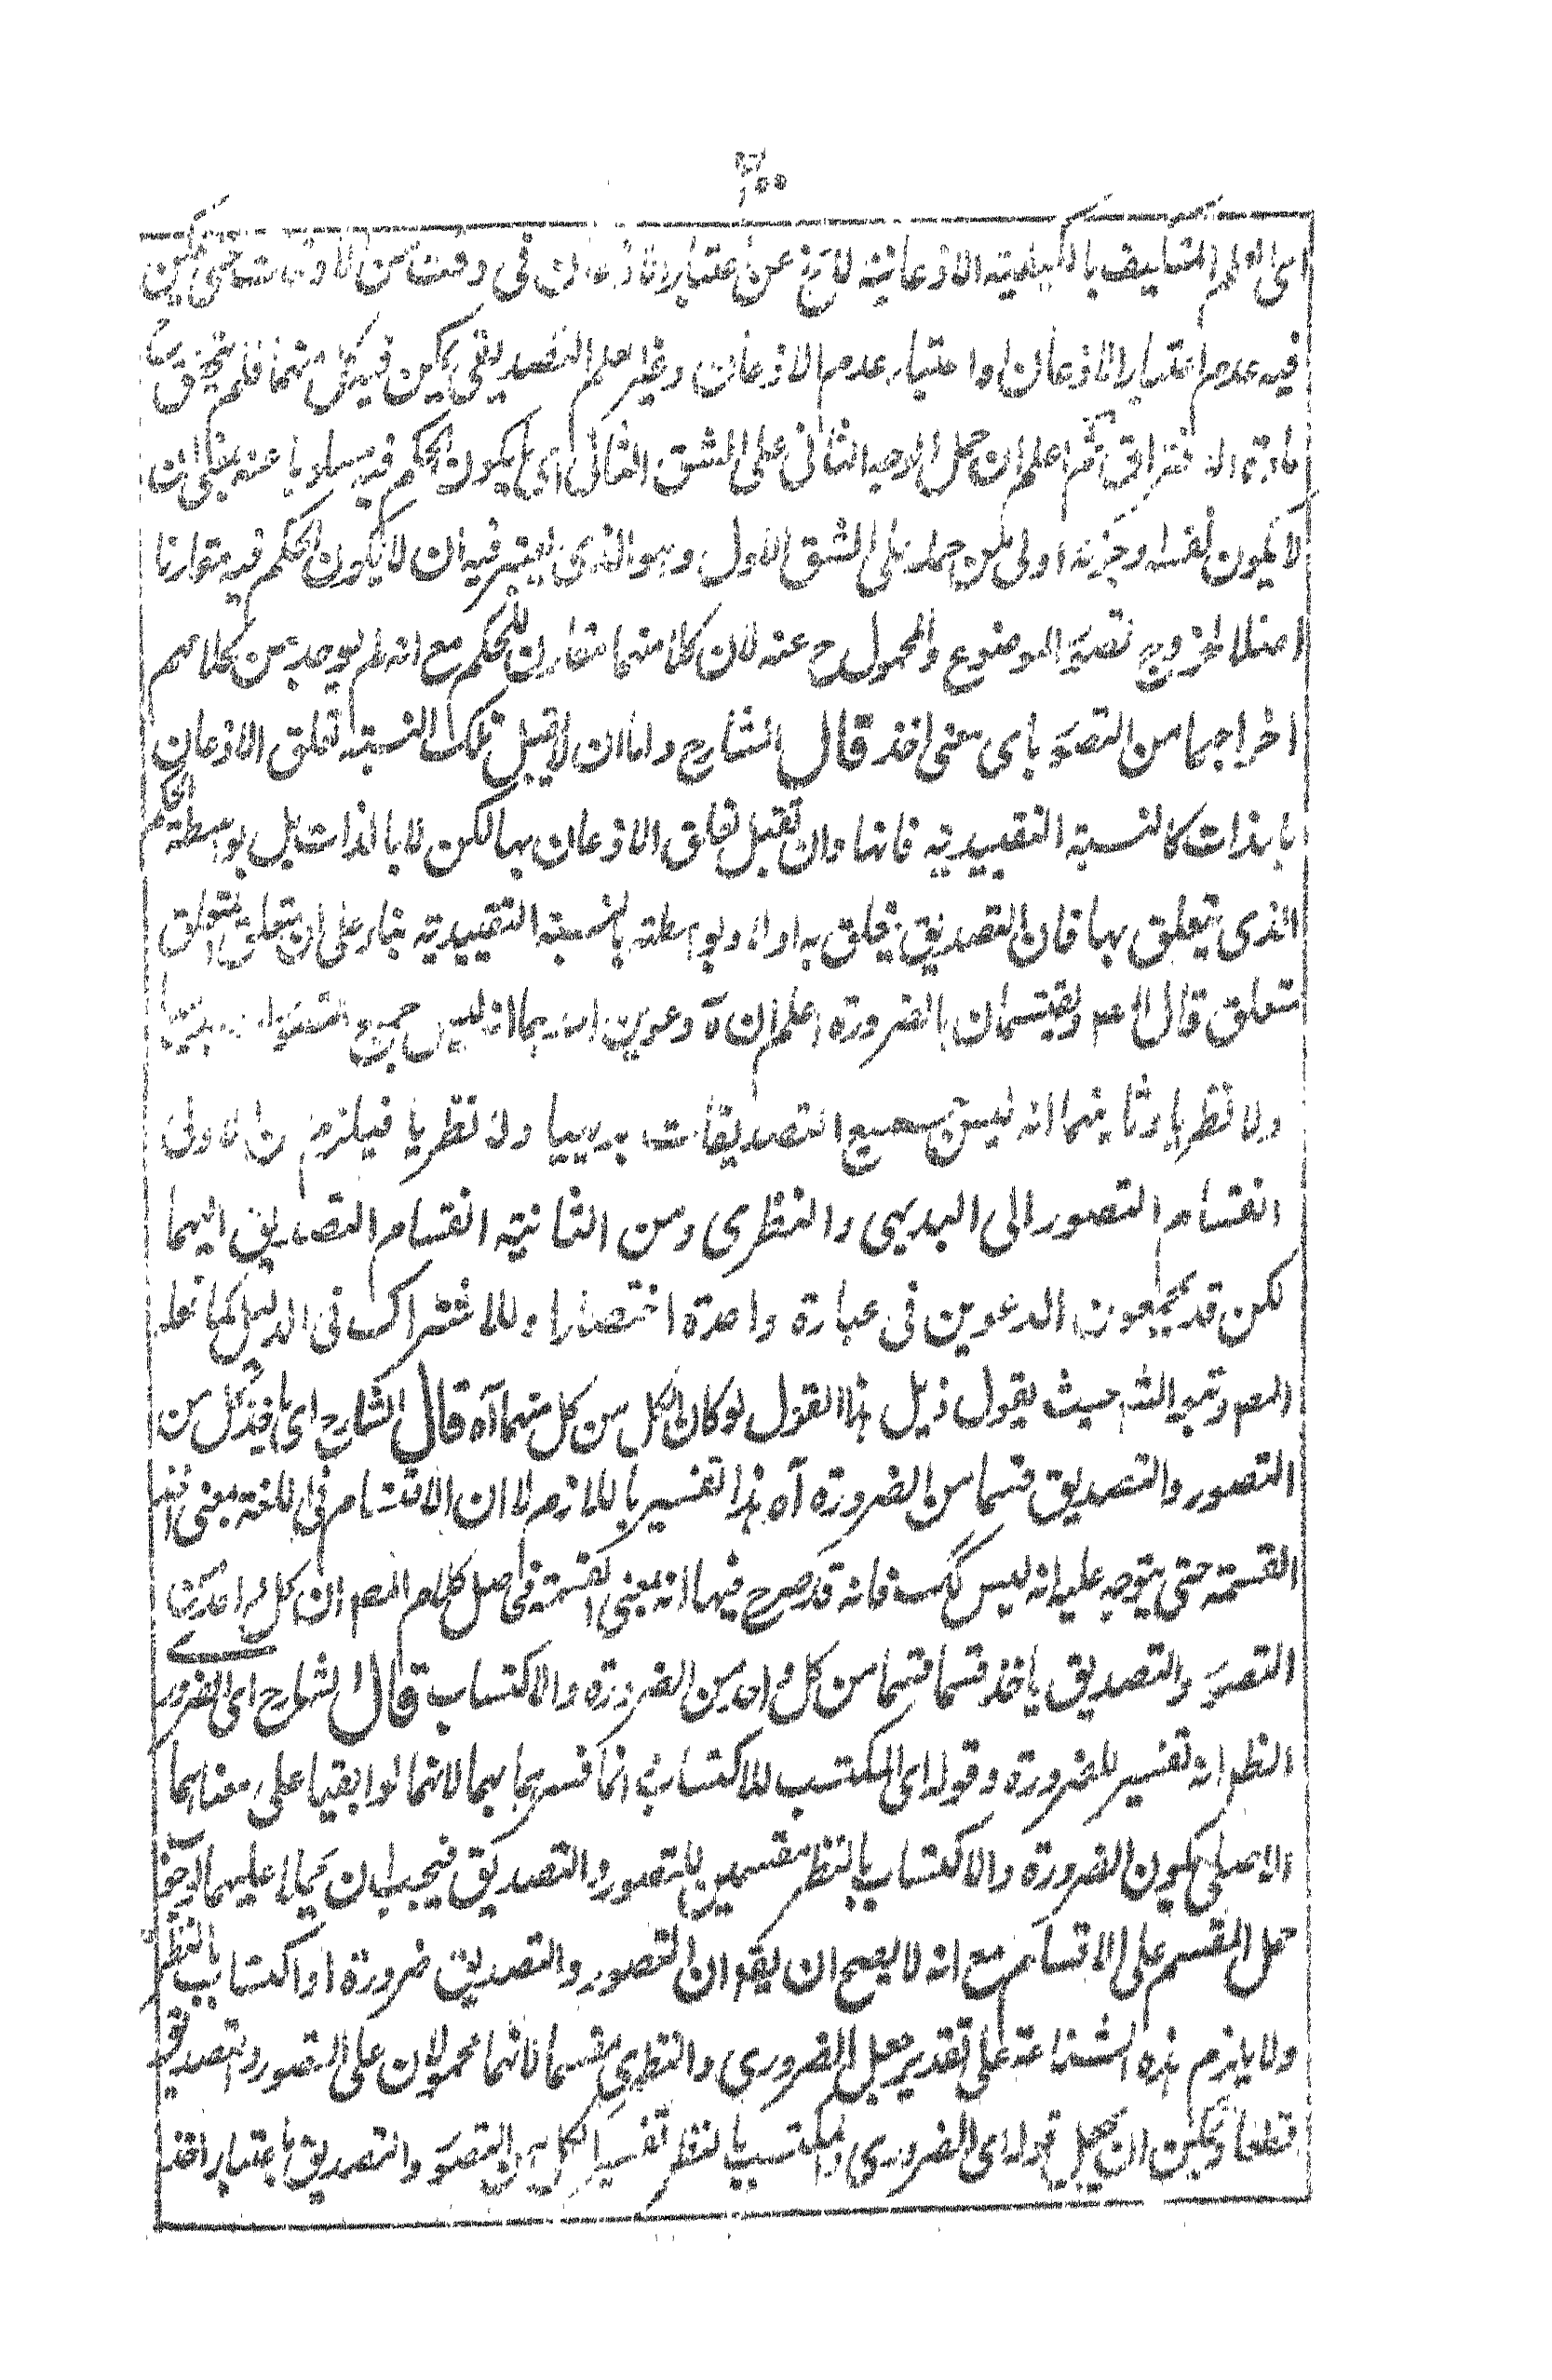 فيه عدم اعتبار الاذعان او اعتبار عدم الاذعان وغير علم التصديقي يمكن فيه كل منهما فلم يتحقق
مادة الافتراق ثم اعلم ان حمل الوجه الثاني على الشق الثاني اي ان يكون الحكم فيه مسلوبا عنه بمعنى ان
لا يكون نفسه وجزئه اولى من حمله على الشق الاول وهو الذي يعتبر فيه ان لا يكون الحكم فيه مقارنا
اصلا لخروج تصور الموضوع والمحمول ح عنه لان كلا منهما مقارن للحكم مع انه لم يوجد من كلامهم
اخراجهما من التصور باى معنى اخذ قال الشارح واما ان لا تقبل تلك النسبة تعلق الاذعان
بالذات كالنسبة التقييدية فانها وان تقبل تعلق الاذعان بها لكن لا بالذات بل بواسطة الحكم
الذى يتعلق بها فان التصديق يتعلق به اولا وبواسطته بالنسبة التقييدية بناء على ان متعلق المتعلق
متعلق قال المص ويقتسمان بالضرورة اعلم ان ههنا دعوين احدهما انه ليس جميع التصورات بديهيا
ولا نظريا وثانيهما انه ليس جميع التصديقات بديهيا ولا نظريا فيلزم من الاولى
انقسام التصور الى البديهى والنظرى ومن الثانية انقسام التصديق اليهما
لكن قد يجمعون الدعوين فى عبارة واحدة اختصارا وللاشتراك فى الدليل كما فعله
المص وتبعه الشه حيث يقول ذيل هذا القول لو كان الكل من كل منهما آه قال الشارح اى ياخذ كل من
التصور والتصديق قسما من الضرورة آه هذا تفسير باللازم لا ان الاقتسام فى اللغة بمعنى اخذ
القسمة حتى يتوجه عليه انه ليس كك فانه قد صرح فيها انه بمعنى القسمة فحاصل كلام المص ان كل واحد من
التصور والتصديق ياخذ قسما قسما من كل واحد من الضرورة والاكتساب قال الشارح اى الضرورى
الظ انه تفسير للضرورة وقوله اى المكتسب للاكتساب انما فسرهما بهما لانهما لو ابقيا على معناهما
الاصلى يكون الضرورة والاكتساب بالنظر مقسمين للتصور والتصديق فيجب ان يحملا عليهما لوجوب
حمل المقسم على الاقسام مع انه لا يصح ان يقه ان التصور والتصديق ضرورة او اكتساب بالنظر
ولا يلزم هذه الشناعة على تقدير جعل الضرورى والنظرى مقسما لانهما محمولان على التصور والتصديق
قطعا ويمكن ان يجعل قوله اى الضرورى والمكتسب بالنظر تفسيرا لكل من التصور والتصديق باعتبار اخذ